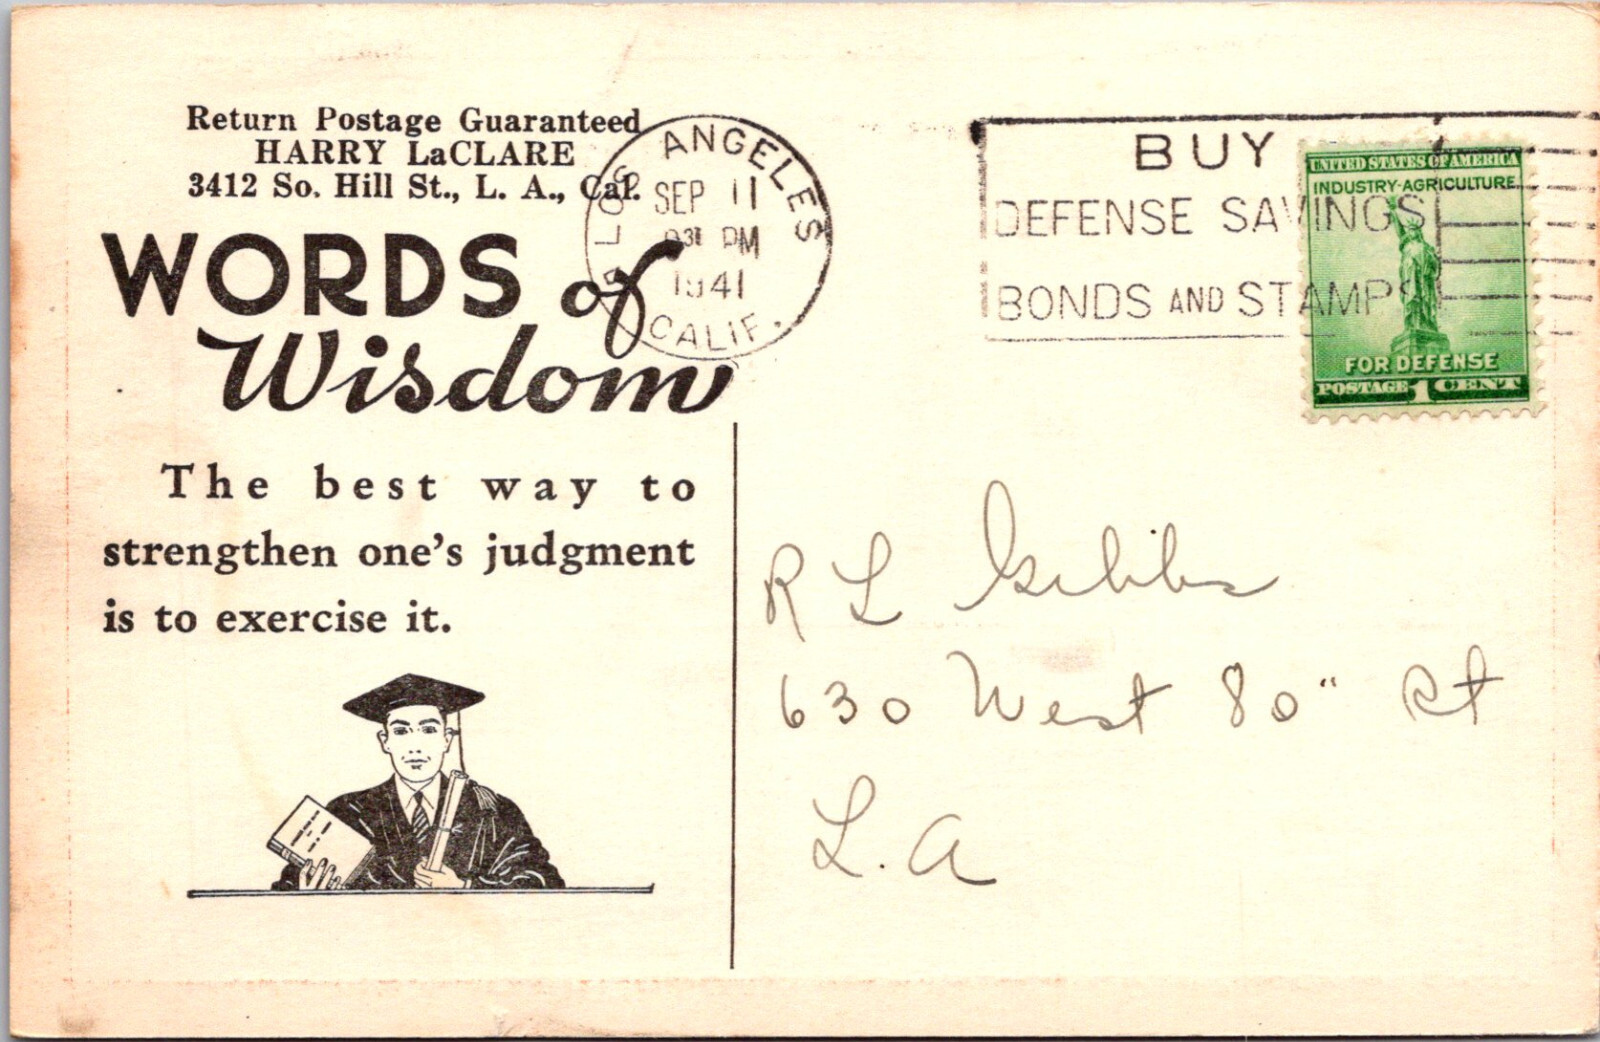 Return Postage Guaranteed
HARRY LaCLARE
3412 So. Hill St., L. A., Cal.
WORDS of
Wisdom
The best way to
strengthen one's judgment
is to exercise it.
LOS ANGELES
SEP 11
PM
1941
CALIF.
BUY
DEFENSE SAVINGS
BONDS AND STAMPS
UNITED STATES OF AMERICA
INDUSTRY-AGRICULTURE
FOR DEFENSE
POSTAGE 1 CENT
R L Gibbs
630 West 80" St
L.A